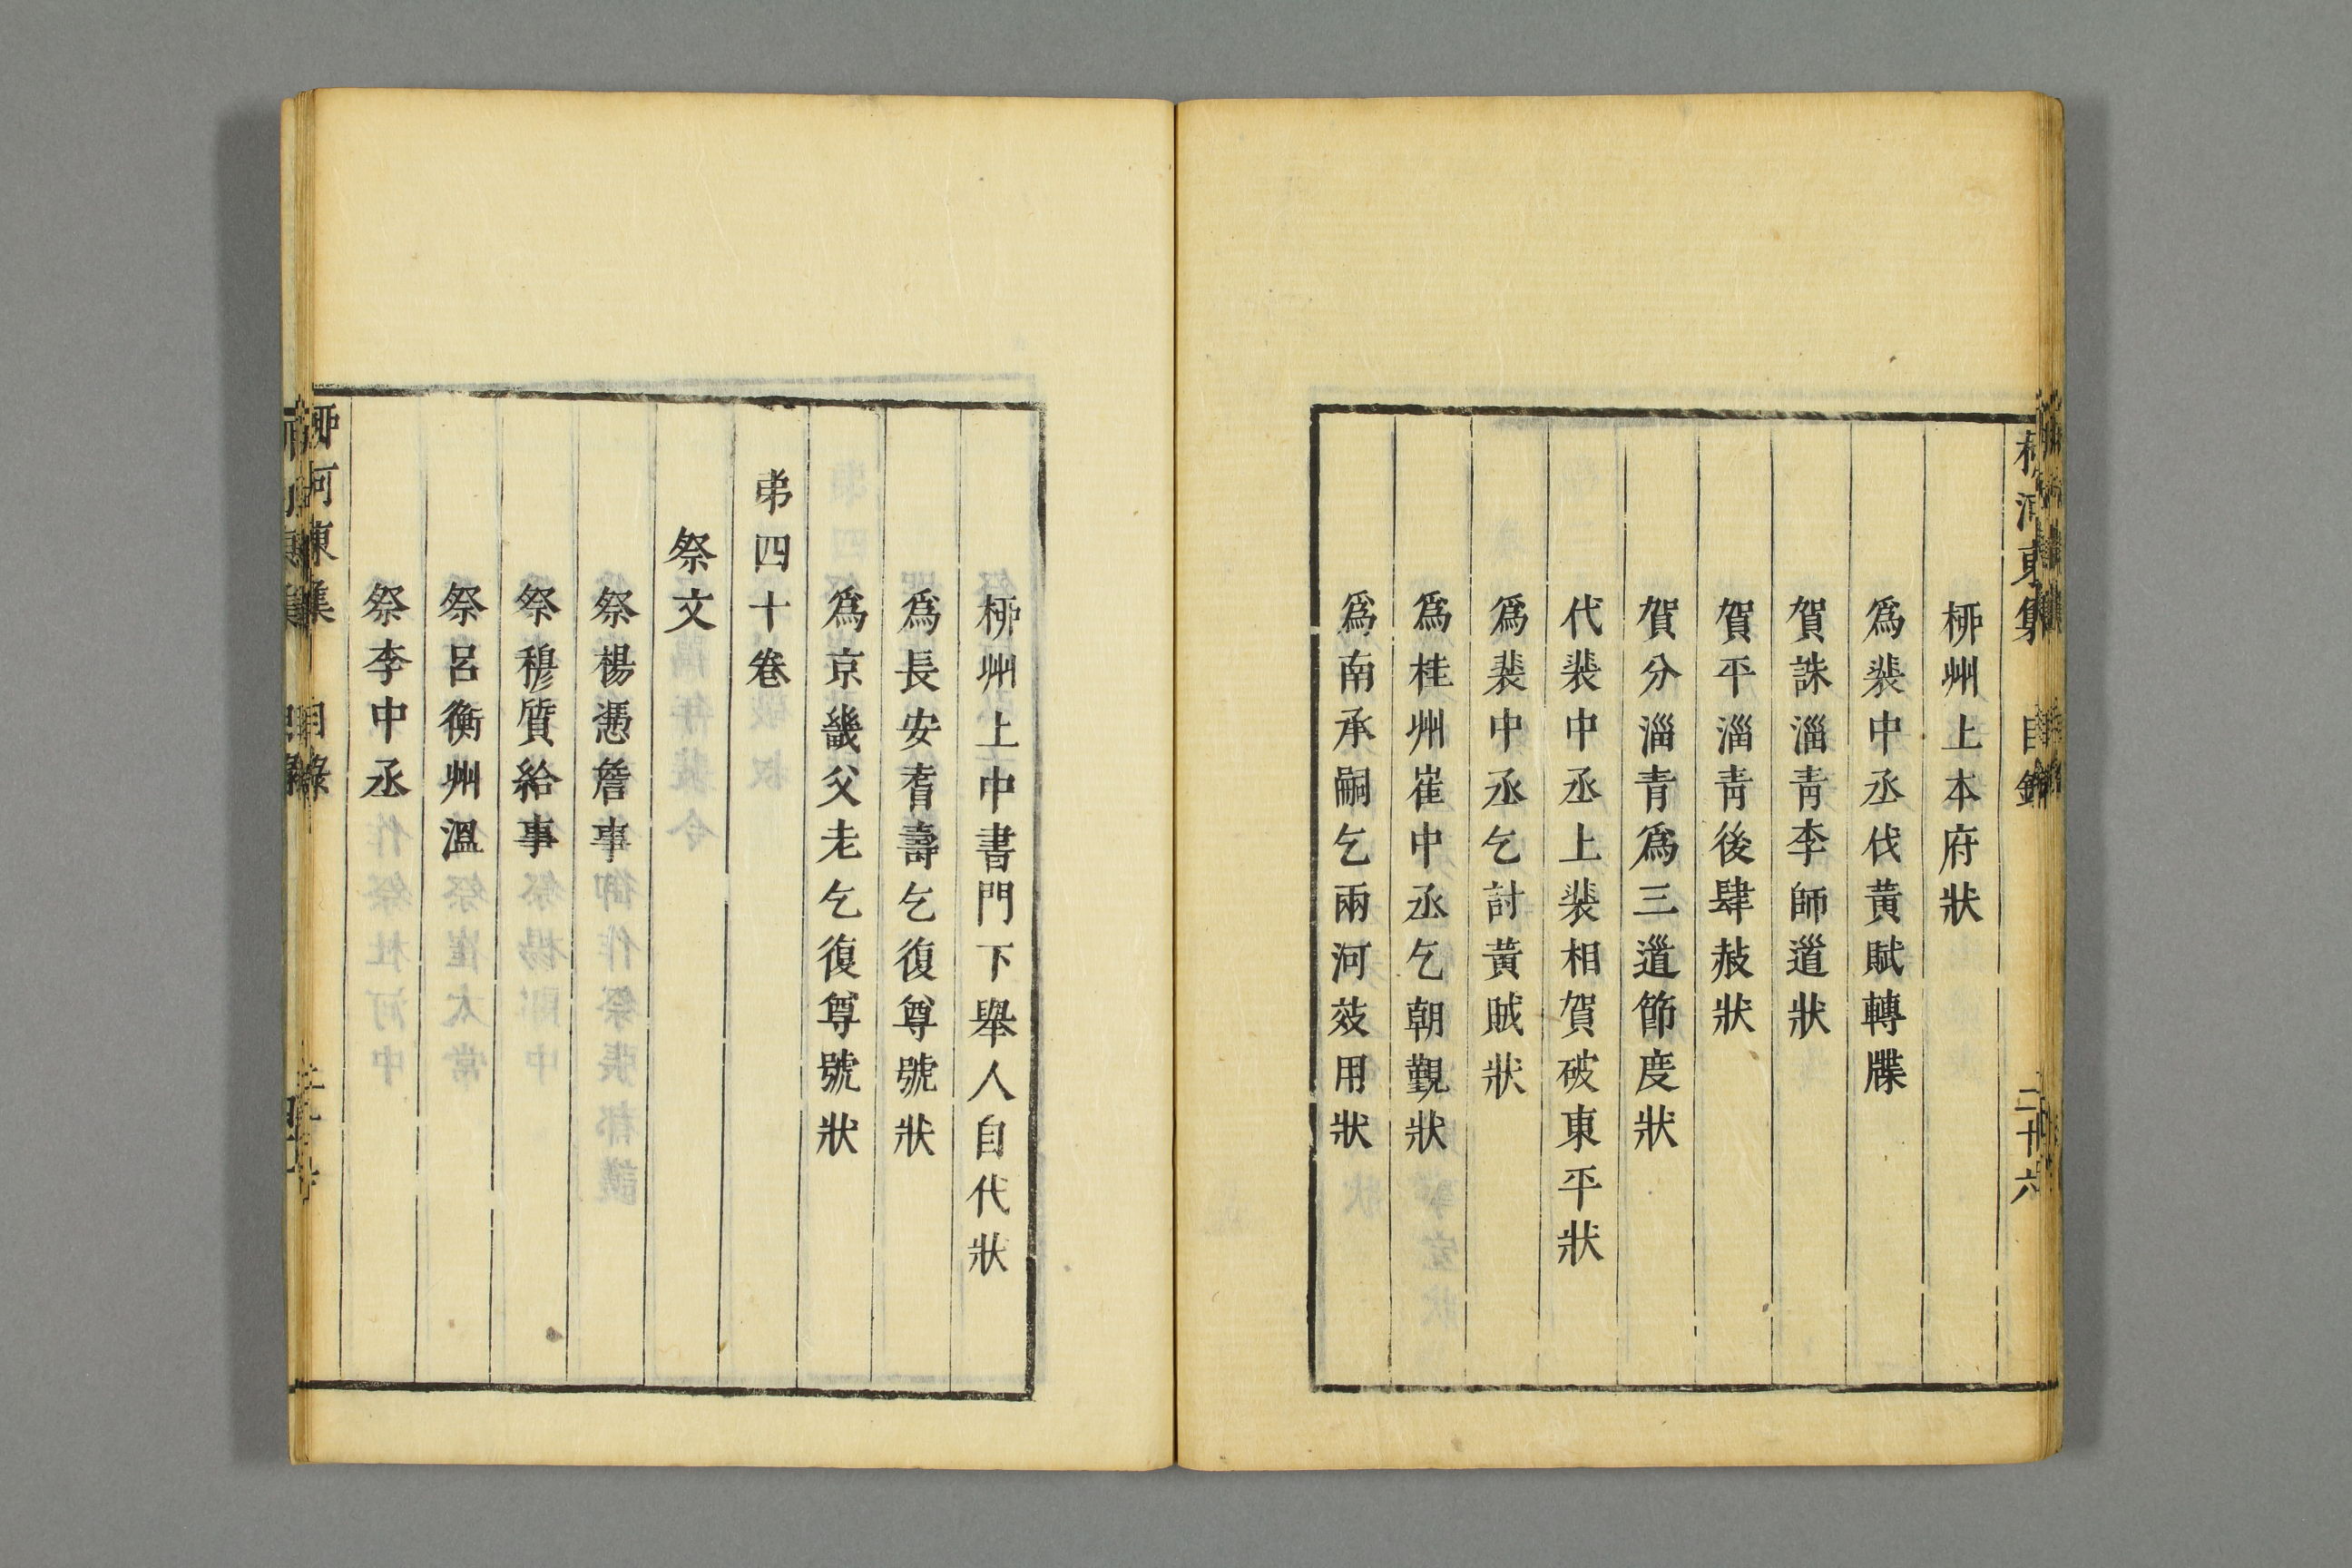 柳河東集 目錄 二十六
柳州上本府狀
爲裴中丞伐黃賊轉牒
賀誅淄靑李師道狀
賀平淄靑後肆赦狀
賀分淄青爲三道節度狀
代裴中丞上裴相賀破東平狀
爲裴中丞乞討黃賊狀
爲桂州崔中丞乞朝覲狀
爲南承嗣乞兩河效用狀
柳州上中書門下舉人自代狀
爲長安耆壽乞復尊號狀
爲京畿父老乞復尊號狀
弟四十卷
祭文
祭楊憑詹事
祭穆質給事
祭呂衡州溫
祭李中丞
柳河東集 目錄